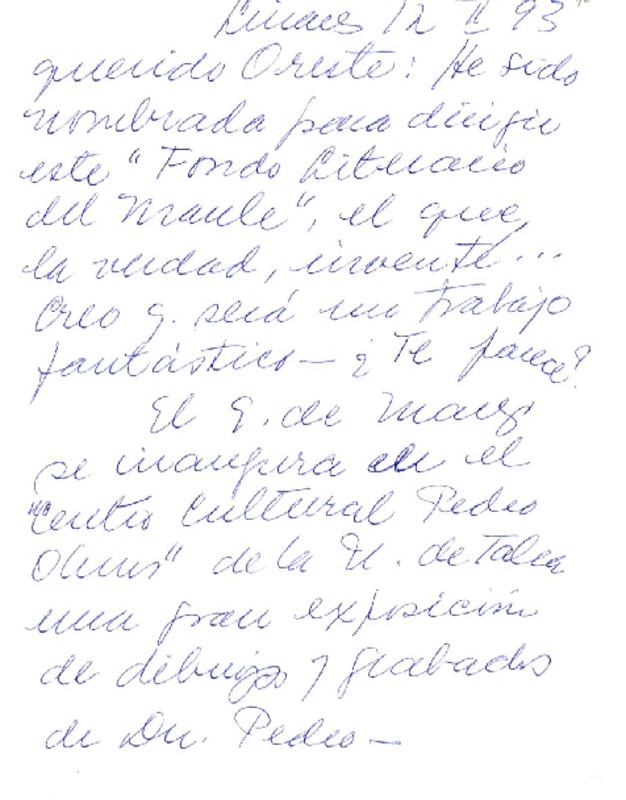 Linares 12 II 93
querido Oreste: He sido
nombrada para dirigir
este "Fondo Literario
del Maule", el que,
la verdad, inventé...
Creo q. será un trabajo
fantástico — ¿Te parece?
El 9. de Marzo
se inaugura en el
"Centro Cultural Pedro
Olmos" de la U. de Talca
una gran exposición
de dibujos y grabados
de Dn. Pedro —